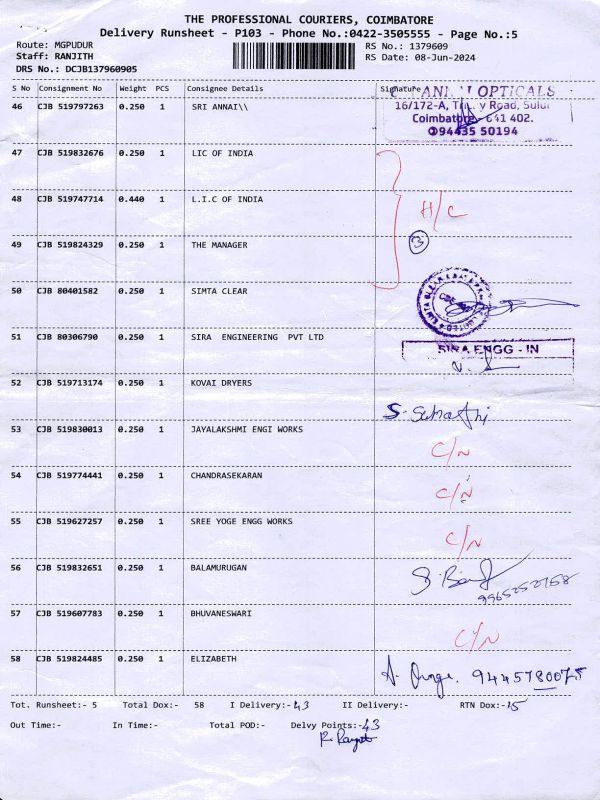 THE PROFESSIONAL COURIERS, COIMBATORE
Delivery Runsheet - P103 - Phone No.:0422-3505555 - Page No.:5
Route: MGPUDUR
RS No.: 1379609
Staff: RANJITH
RS Date: 08-Jun-2024
DRS No.: DCJB137960905
S No Consignment No Weight PCS Consignee Details Signature
46 CJB 519797263 0.250 1 SRI ANNAI\\
OPTICALS
16/172-A, Road, Sulur
Coimbatore - 641 402.
94435 50194
47 CJB 519832676 0.250 1 LIC OF INDIA
48 CJB 519747714 0.440 1 L.I.C OF INDIA
H/C
49 CJB 519824329 0.250 1 THE MANAGER
3
50 CJB 80401582 0.250 1 SIMTA CLEAR
51 CJB 80306790 0.250 1 SIRA ENGINEERING PVT LTD
SIRA ENGG - IN
52 CJB 519713174 0.250 1 KOVAI DRYERS
S. Sumathi
53 CJB 519830013 0.250 1 JAYALAKSHMI ENGI WORKS
C/N
54 CJB 519774441 0.250 1 CHANDRASEKARAN
C/N
55 CJB 519627257 0.250 1 SREE YOGE ENGG WORKS
C/N
56 CJB 519832651 0.250 1 BALAMURUGAN
57 CJB 519607783 0.250 1 BHUVANESWARI
C/N
58 CJB 519824485 0.250 1 ELIZABETH
9445780075
Tot. Runsheet:- 5 Total Dox:- 58 I Delivery:- 43 II Delivery:- RTN Dox:- 15
Out Time:- In Time:- Total POD:- Delvy Points:- 43